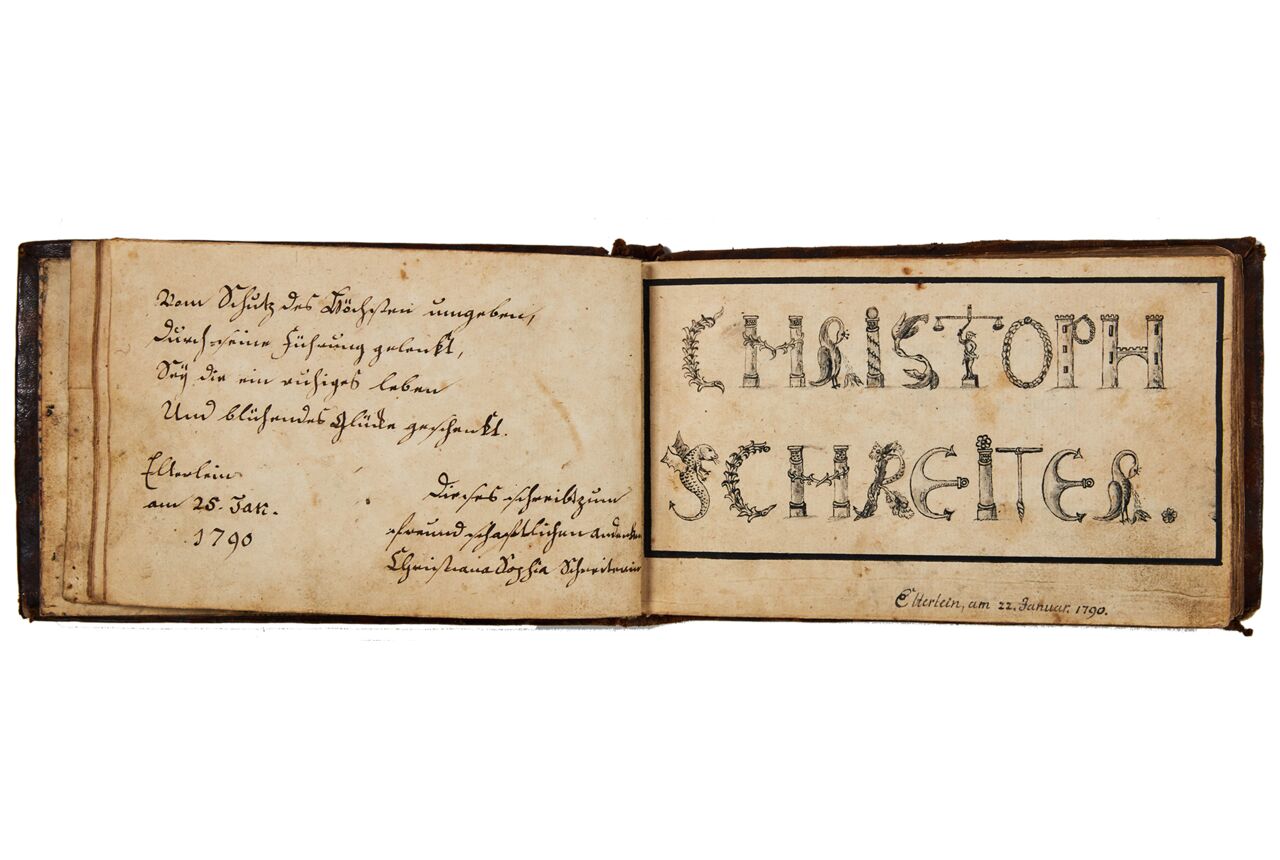 Vom Schutz des Höchsten umgeben,
Durch seine Führung gelenkt,
Sey dir ein ruhiges leben
Und blühendes Glücke geschenkt.
Elterlein
am 25. Jan.
1790
Dieses schreibt zum
freundschaftlichen andenken
Christiana Sophia Schreiterin
CHRISTOPH
SCHREITER.
Elterlein, am 22. Januar. 1790.